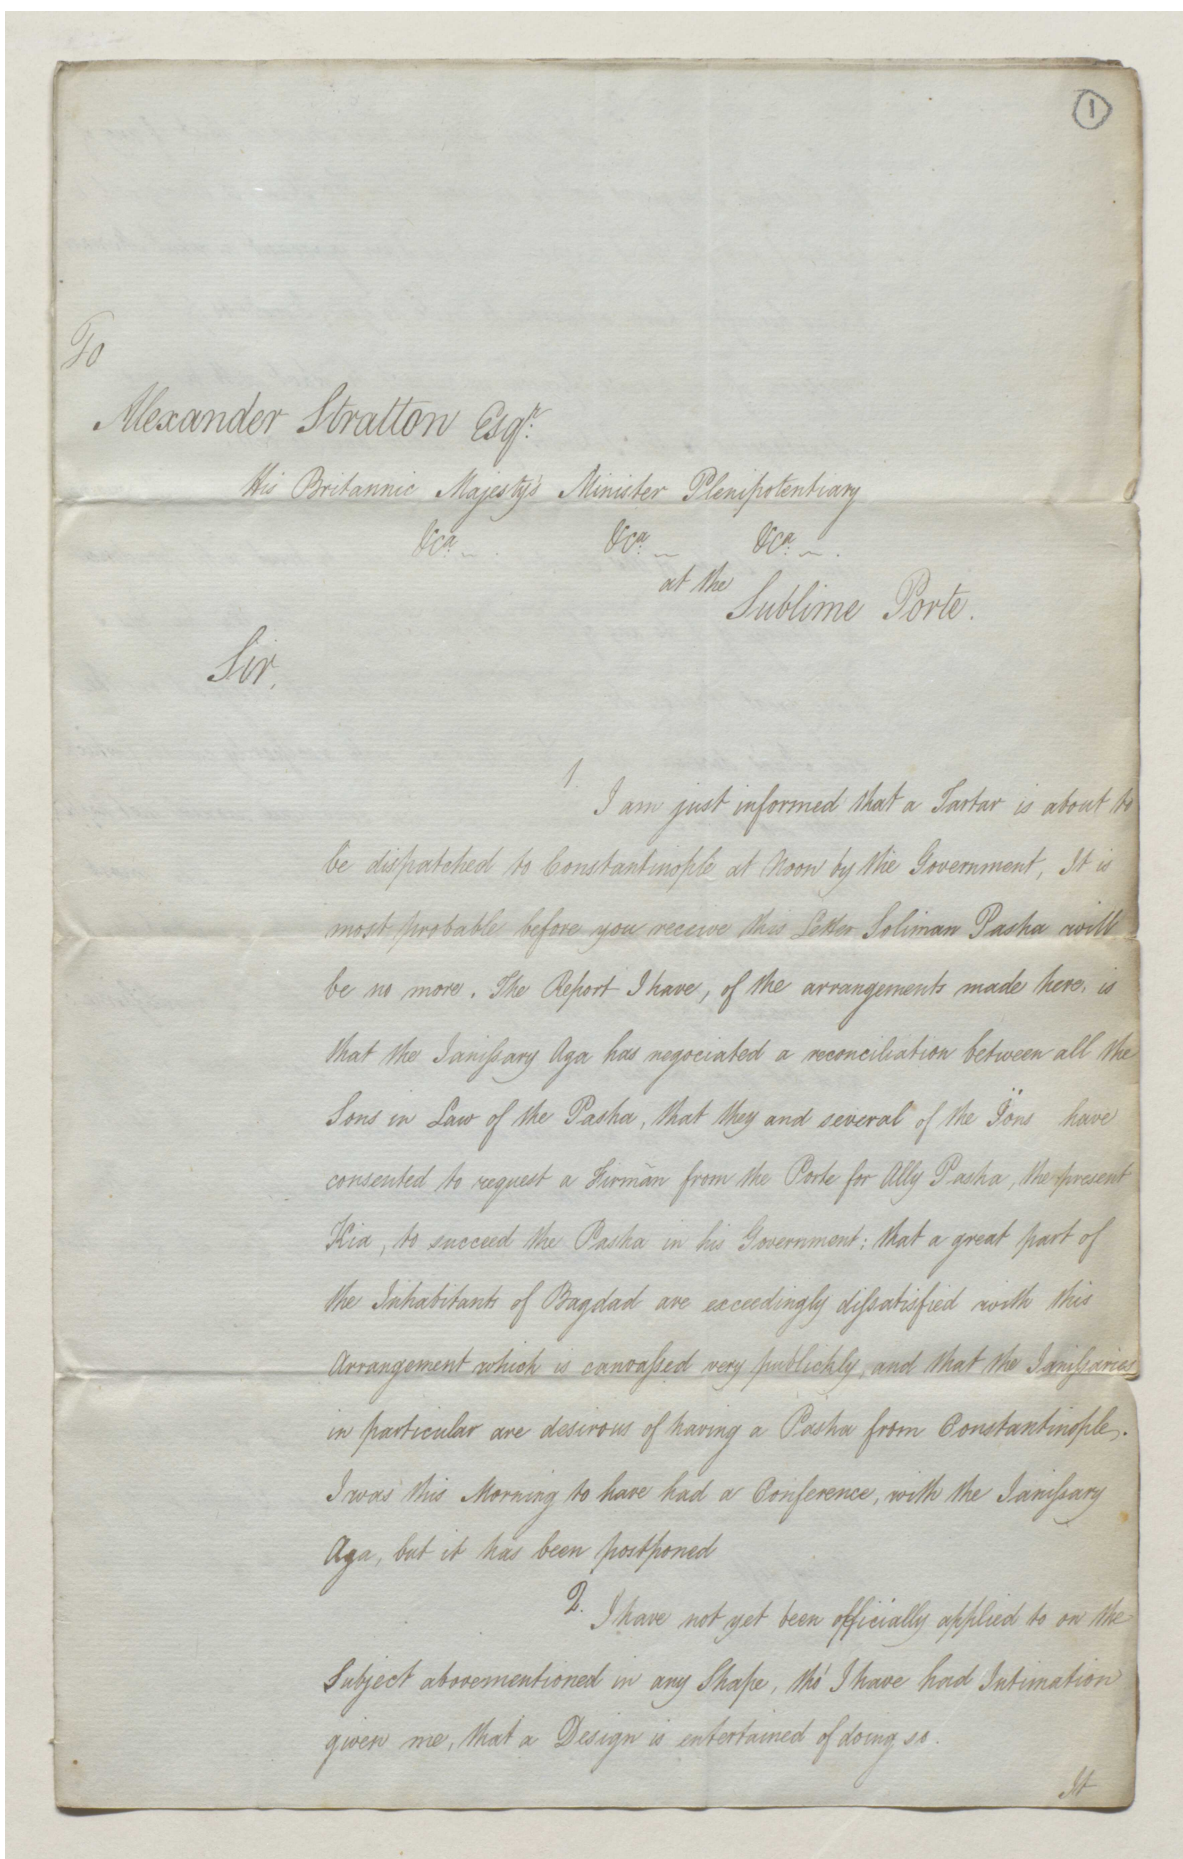 1
To
Alexander Stratton Esqr.
His Britannic Majesty's Minister Plenipotentiary
&ca. &ca. &ca.
at the
Sublime Porte.
Sir,
1. I am just informed that a Tartar is about to
be dispatched to Constantinople at Noon by the Government, It is
most probable before you receive this Letter Soliman Pasha will
be no more. The Report I have, of the arrangements made here, is
that the Janissary Aga has negociated a reconciliation between all the
Sons in Law of the Pasha, that they and several of the have
consented to request a Firmān from the Porte for Ally Pasha, the present
Kia, to succeed the Pasha in his Government; that a great part of
the Inhabitants of Bagdad are exceedingly dissatisfied with this
Arrangement which is canvassed very publickly, and that the Janissaries
in particular are desirous of having a Pasha from Constantinople.
I was this Morning to have had a Conference, with the Janissary
Aga, but it has been postponed
2. I have not yet been officially applied to on the
Subject abovementioned in any Shape, tho' I have had Intimation
given me, that a Design is entertained of doing so.
It